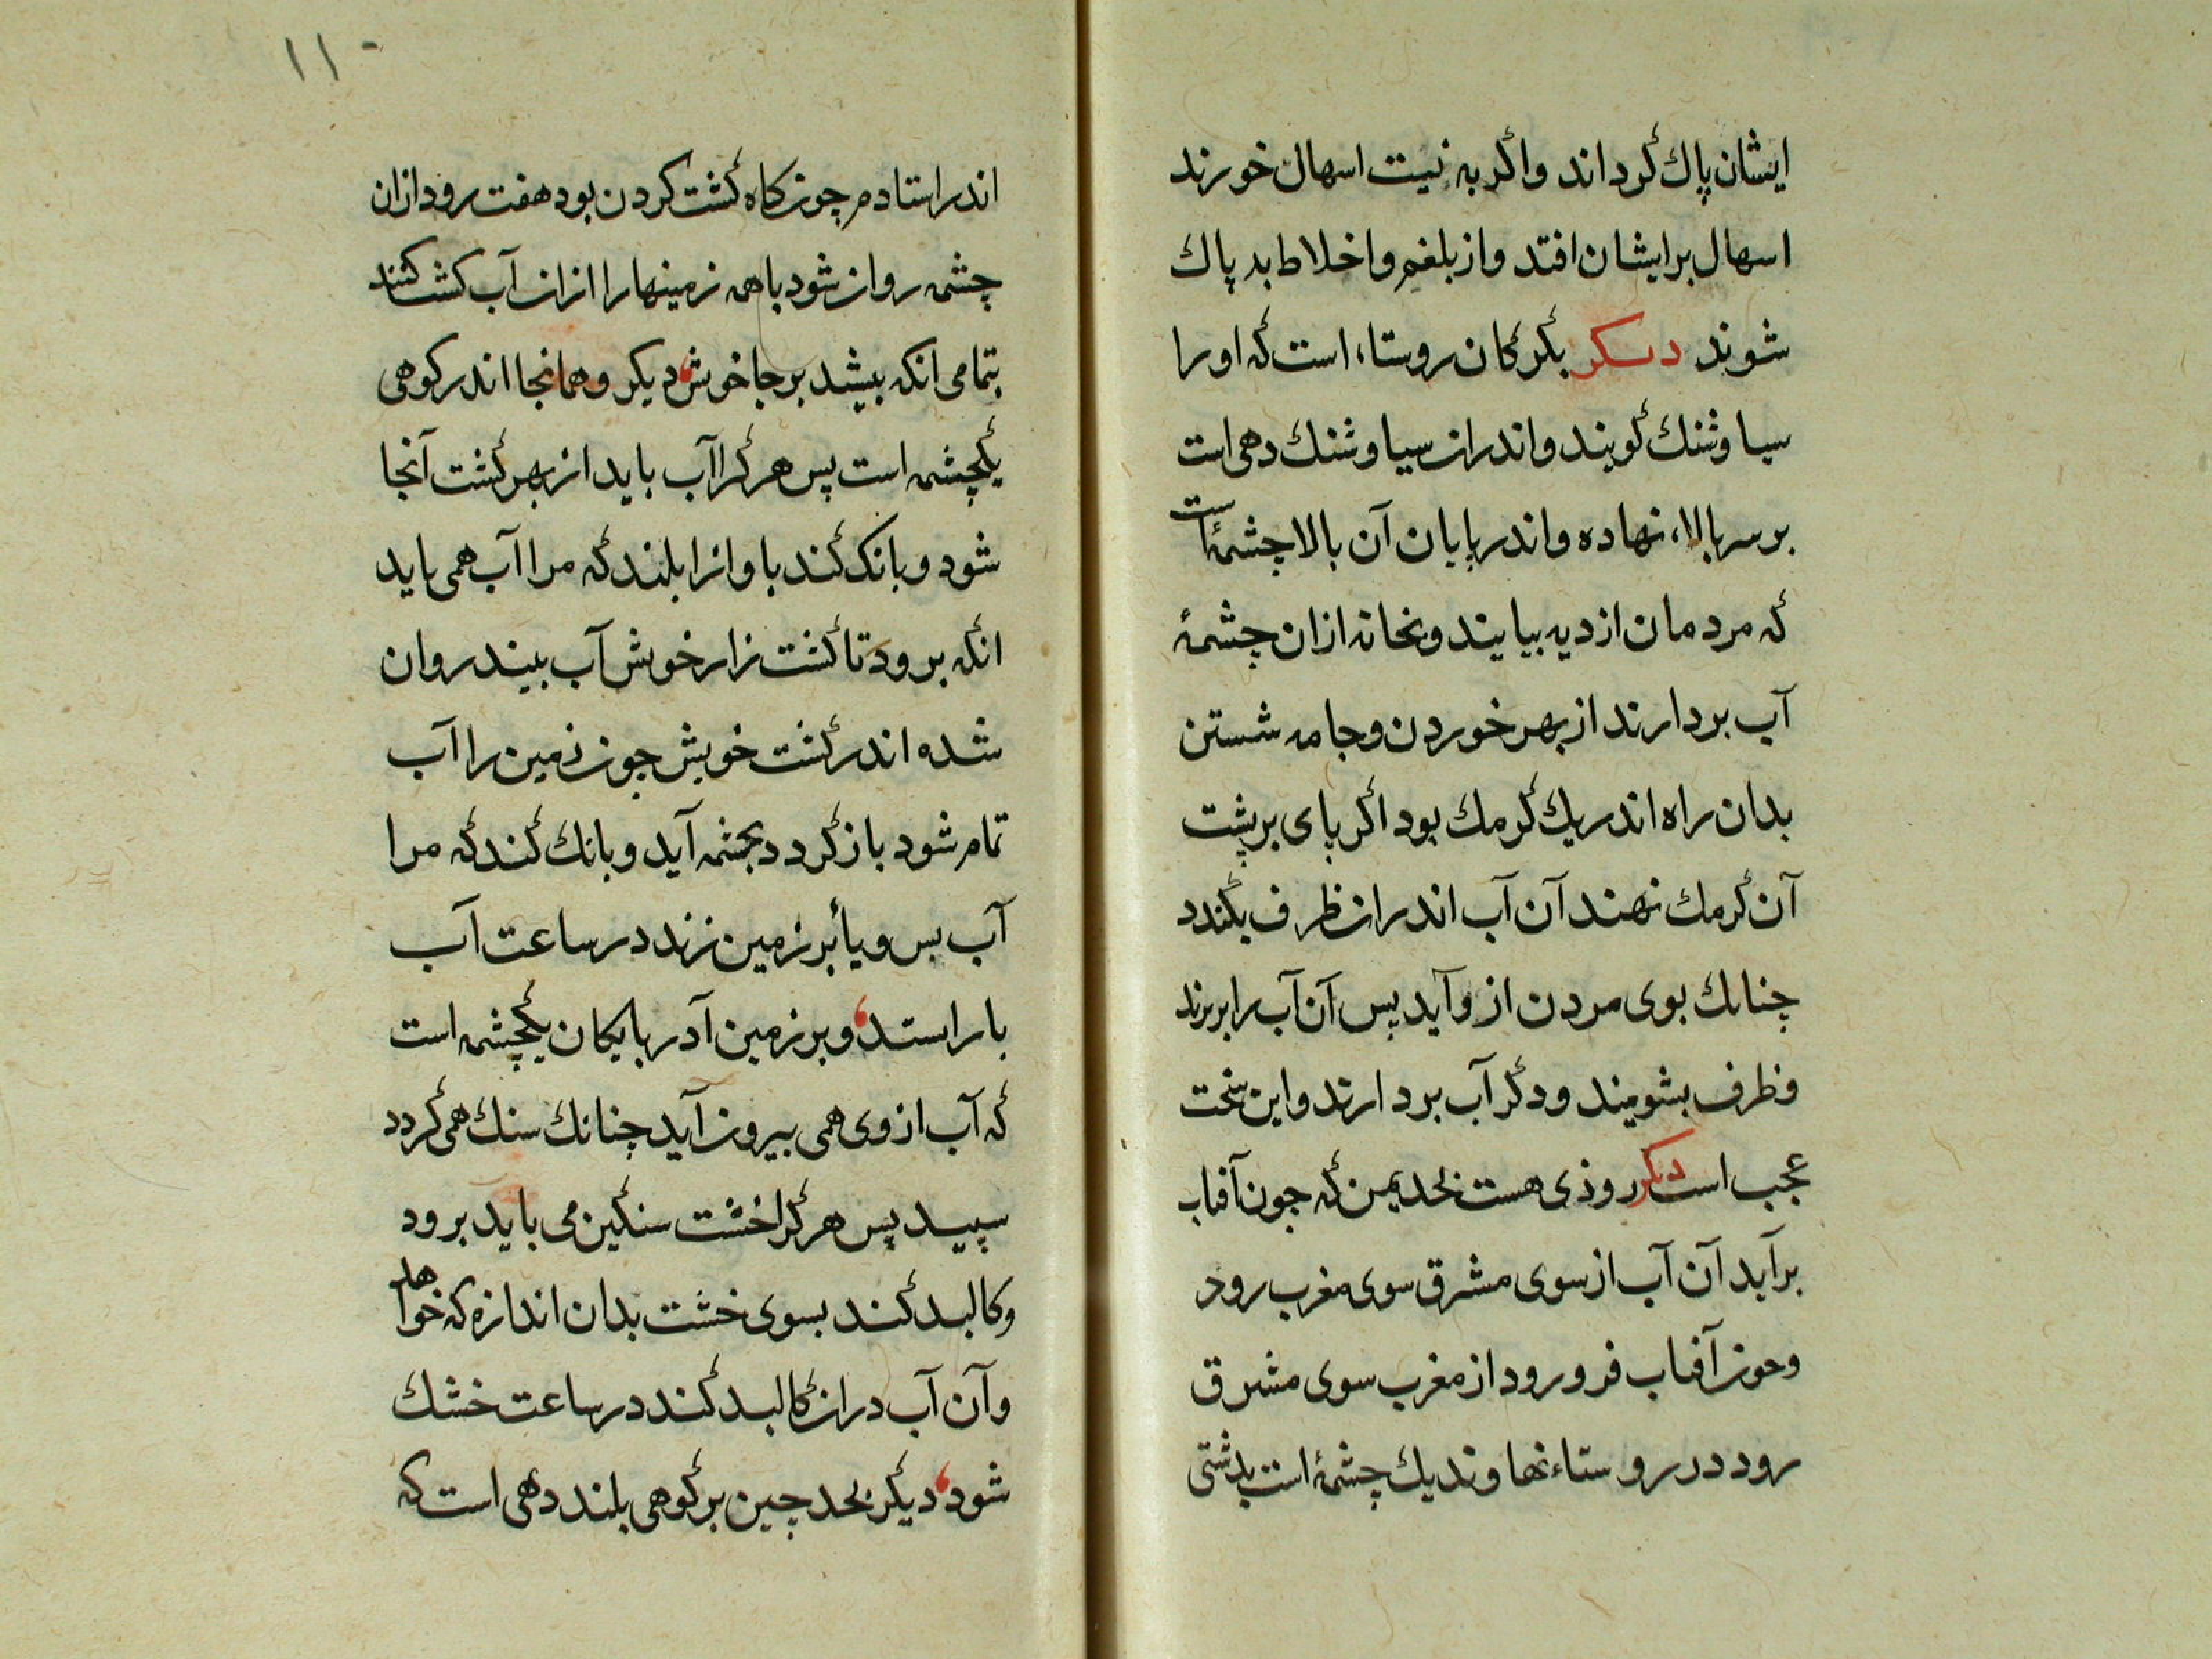 ایشان پاك گرداند واگر به نیت اسهال خورند
اسهال برایشان افتد واز بلغم واخلاط بد پاك
شوند دیگر بگرگان روستاء است که اورا
سیاوشنك گویند واندران سیاوشنك دهی است
بر سر بالاء نهاده واندر پایان آن بالا چشمهٔ است
که مردمان از دیه بیایند وبخانه ازان چشمهٔ
آب بردارند از بهر خوردن وجامه شستن
بدان راه اندر یك کرمك بود اگر پای بر پشت
آن کرمك نهند آن آب اندران ظرف بگندد
چنانك بوی مردن از و آید پس آن آب را بریزند
وظرف بشویند ودگر آب بردارند واین سخت
عجب است دیگر روذی هست بحد یمن که جون آفتاب
برآید آن آب از سوی مشرق سوی مغرب رود
وجون آفتاب فرو رود از مغرب سوی مشرق
رود در روستاء نهاوند یك چشمهٔ است بدشتی
۱۱۰
اندر استادم چون گاه کشت کردن بود هفت رود ازان
چشمه روان شود با همه زمینها را ازان آب کشت کنند
بتمامی انکه بیشد بر جا خویش دیکر وهمانجا اندر کوهی
یکچشمه است پس هر کرا آب باید از بهر کشت آنجا
شود وبانک کند باواز ابلند که مرا آب همی باید
انکه برود تا کشت زار خویش آب بیند روان
شده اندر کشت خویش جون زمین را آب
تمام شود باز گردد بجشمه آید وبانك کند که مرا
آب بس وپا بر زمین زند در ساعت آب
باز استد وبر زمین آدربایکان یکچشمه است
که آب از وی همی بیرون آید چنانك سنك همی گردد
سپید پس هر کرا خشت سنگین می باید برود
وکالبد کند بسوی خشت بدان اندازه که خواهد
وآن آب دران کالبد کند در ساعت خشك
شود دیگر بحد چین بر کوهی بلند دهی است که